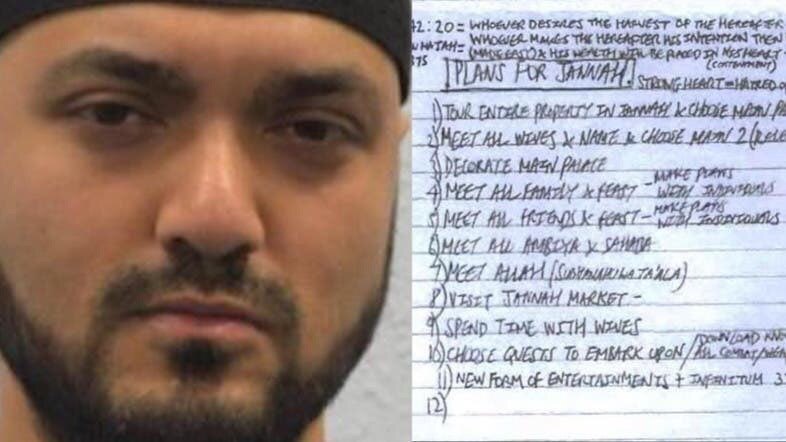 42:20 = WHOEVER DESIRES THE HARVEST OF THE HEREAFTER
WHOEVER MAKES THE HEREAFTER HIS INTENTION THEN
(MADE EASY) & HIS WEALTH WILL BE PLACED IN HIS HEART
(CONTENTMENT)
PLANS FOR JANNAH.
STRONG HEART = HATRED
1) TOUR ENTIRE PROPERTY IN JANNAH & CHOOSE MAIN
2) MEET ALL WIVES & NAME & CHOOSE MAIN 2
3) DECORATE MAIN PALACE
4) MEET ALL FAMILY & FEAST - MAKE PLANS WITH INDIVIDUALS
5) MEET ALL FRIENDS & FEAST - MAKE PLANS WITH INDIVIDUALS
6) MEET ALL ANBIYA & SAHABA
7) MEET ALLAH (SUBHANAHUWATA'ALA)
8) VISIT JANNAH MARKET -
9) SPEND TIME WITH WIVES
10) CHOOSE QUESTS TO EMBARK UPON / DOWNLOAD
11) NEW FORM OF ENTERTAINMENTS + INFINITUM
12)